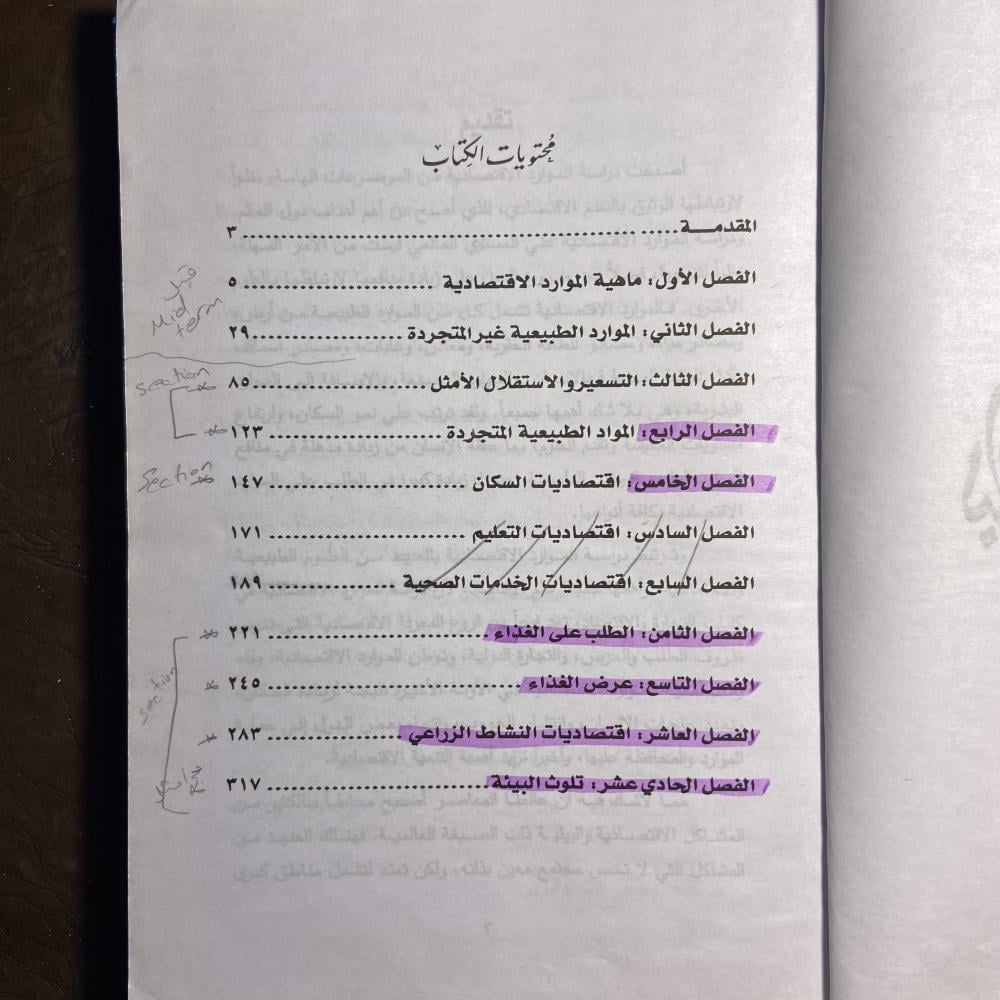 محتويات الكتاب
المقدمـــة..... ................................................ ٣
الفصل الأول: ماهية الموارد الاقتصادية ........................ ٥
قبل
Mid
term
الفصل الثاني: الموارد الطبيعية غير المتجردة ...................٢٩
section
الفصل الثالث: التسعير والاستقلال الأمثل ....................... ٨٥
الفصل الرابع: المواد الطبيعية المتجردة ...................... ١٢٣
Section
الفصل الخامس: اقتصاديات السكان ......................... ١٤٧
الفصل السادس: اقتصاديات التعليم ......................... ١٧١
الفصل السابع: اقتصاديات الخدمات الصحية ................ ١٨٩
الفصل الثامن: الطلب على الغذاء ............................ ٢٢١
section
الفصل التاسع: عرض الغذاء ................................ ٢٤٥
الفصل العاشر: اقتصاديات النشاط الزراعي ................. ٢٨٣
الفصل الحادي عشر: تلوث البيئة ............................ ٣١٧